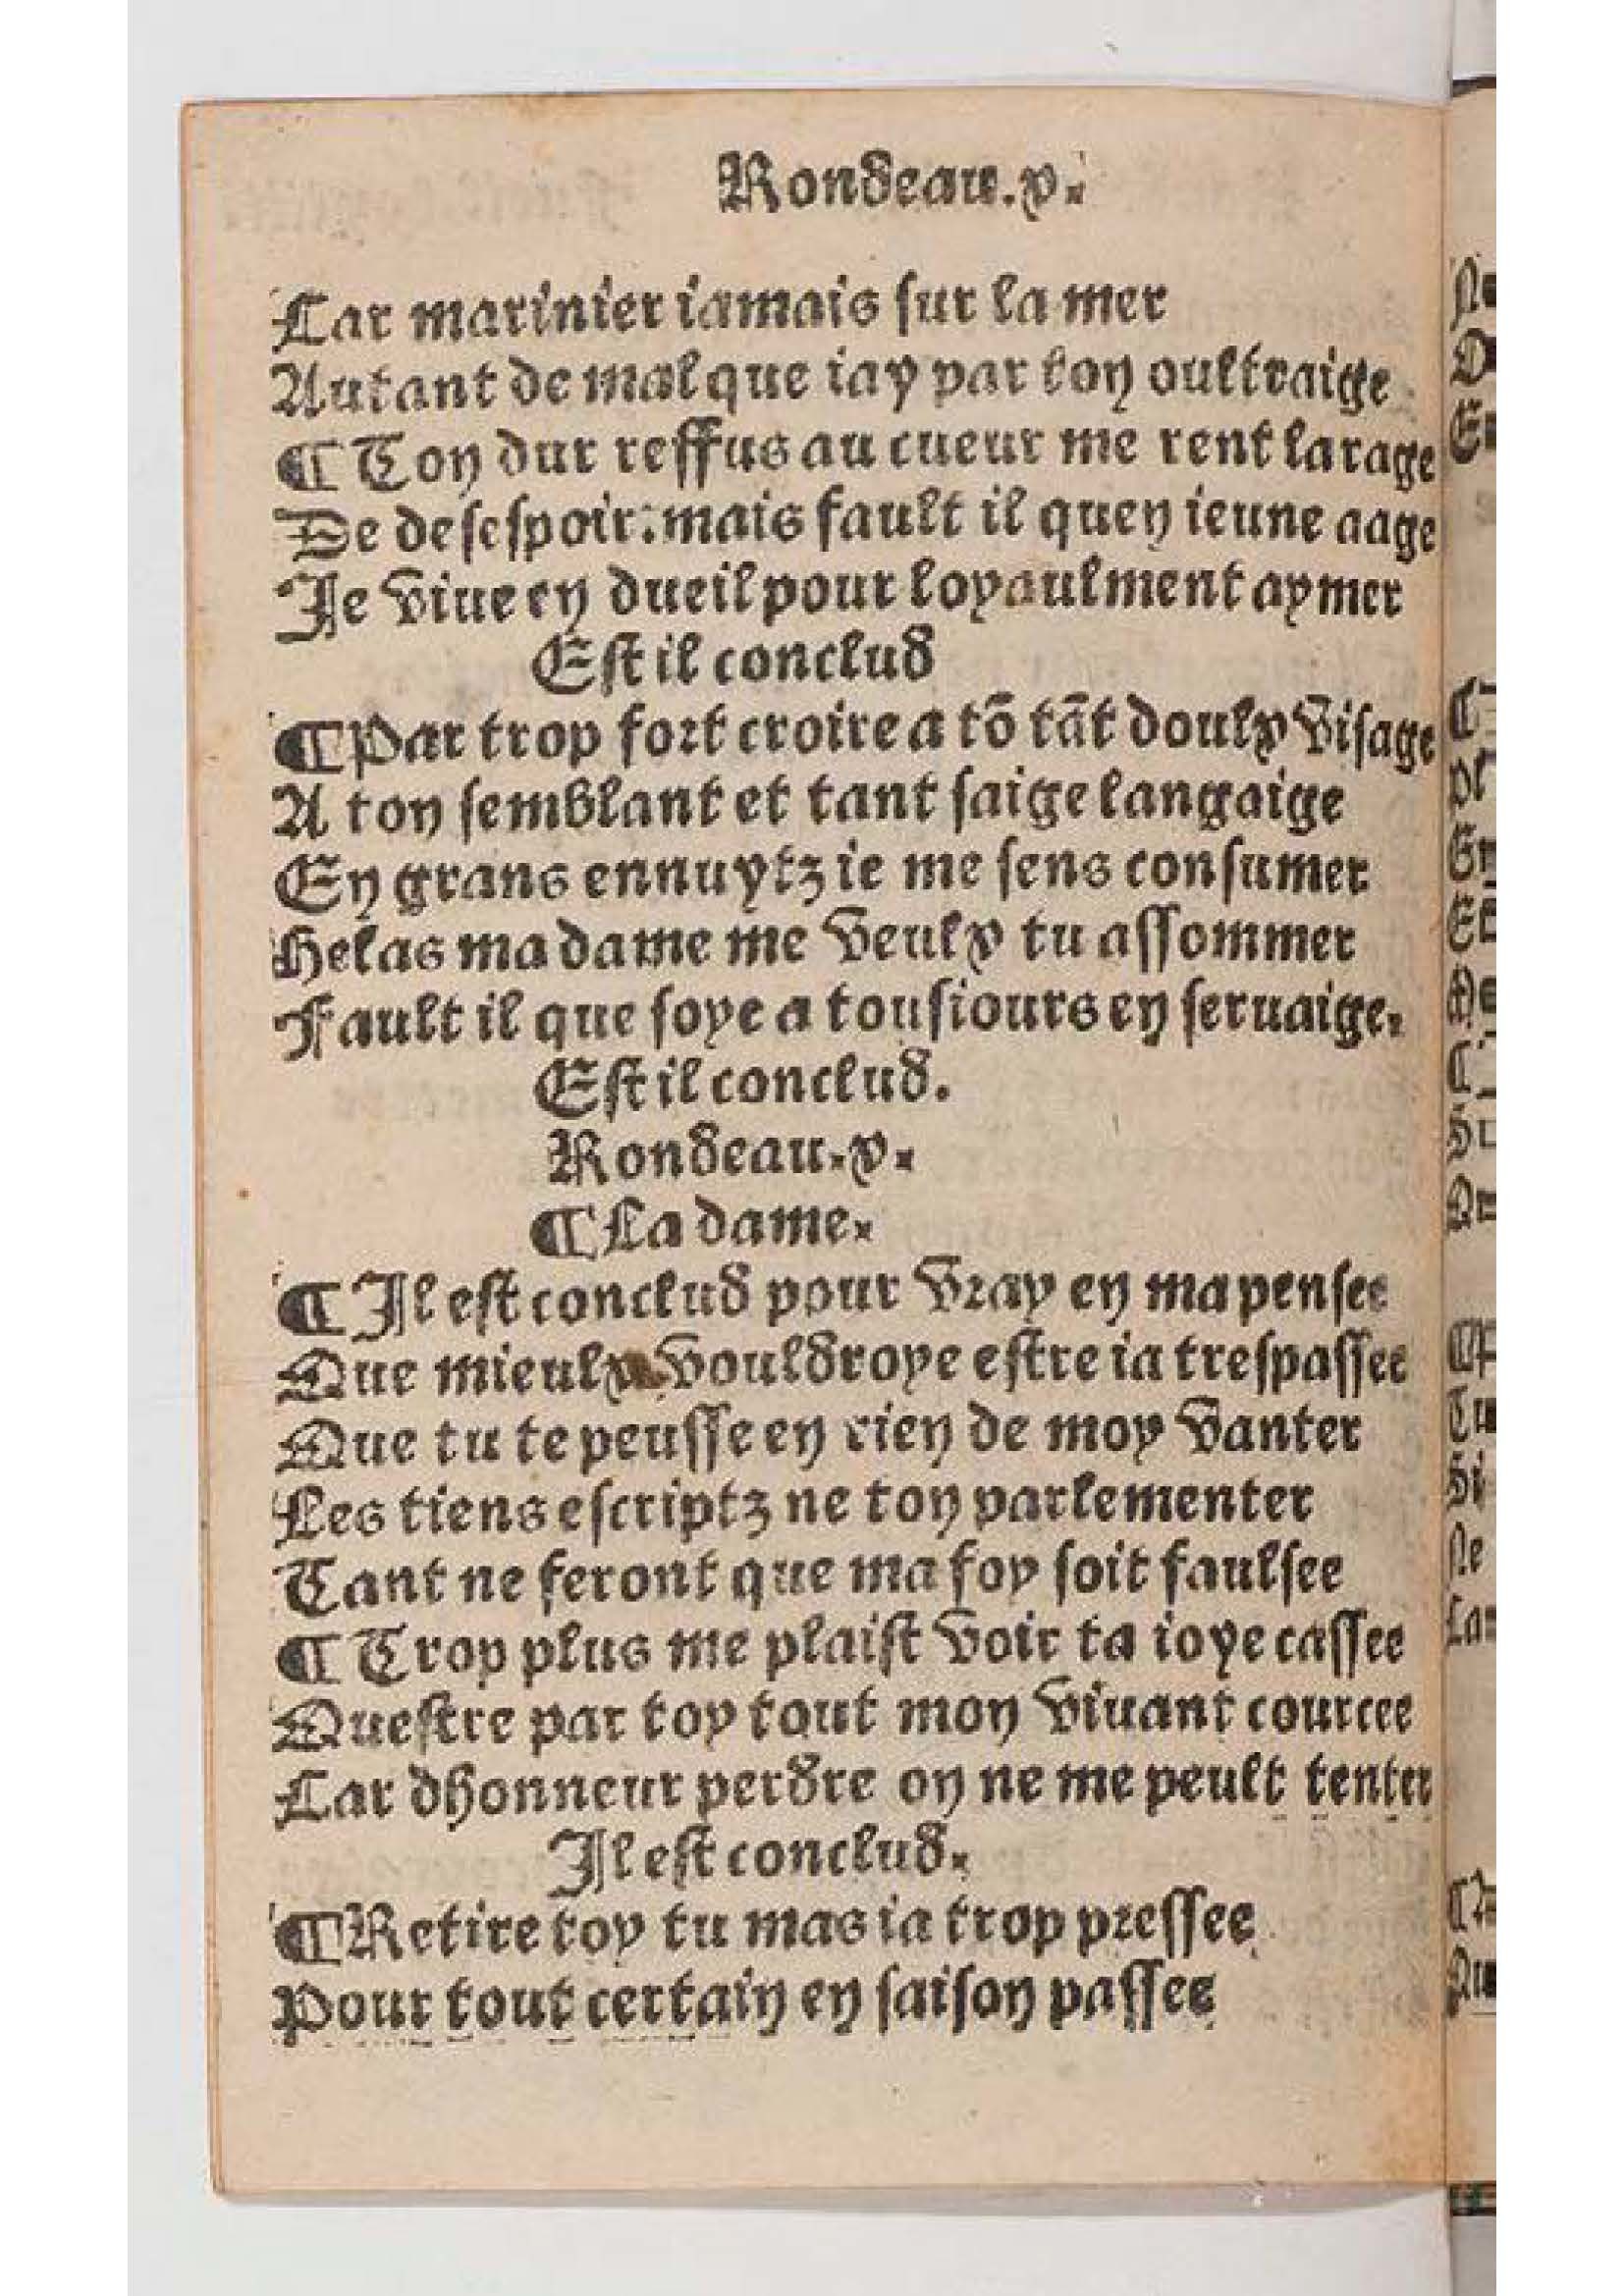 Rondeau.x.
Car marinier iamais sur la mer
Autant de mal que iay par ton oultraige
¶ Ton dur reffus au cueur me rent la rage
De desespoir: mais fault il quen ieune aage
Je viue en dueil pour loyaulment aymer
Est il conclud
¶ Par trop fort croire a tõ tãt doulx visage
A ton semblant et tant saige langaige
En grans ennuytz ie me sens consumer
Helas ma dame me veulx tu assommer
Fault il que soye a tousiours en seruaige.
Est il conclud.
Rondeau.x.
¶ La dame.
¶ Il est conclud pour vray en ma pensee
Que mieulx vouldroye estre ia trespassee
Que tu te peusse en rien de moy vanter
Les tiens escriptz ne ton parlementer
Tant ne feront que ma foy soit faulsee
¶ Trop plus me plaist voir ta ioye cassee
Questre par toy tout mon viuant courcee
Car dhonneur perdre on ne me peult tenter
Il est conclud.
¶ Retire toy tu mas ia trop pressee
Pour tout certain en saison passee